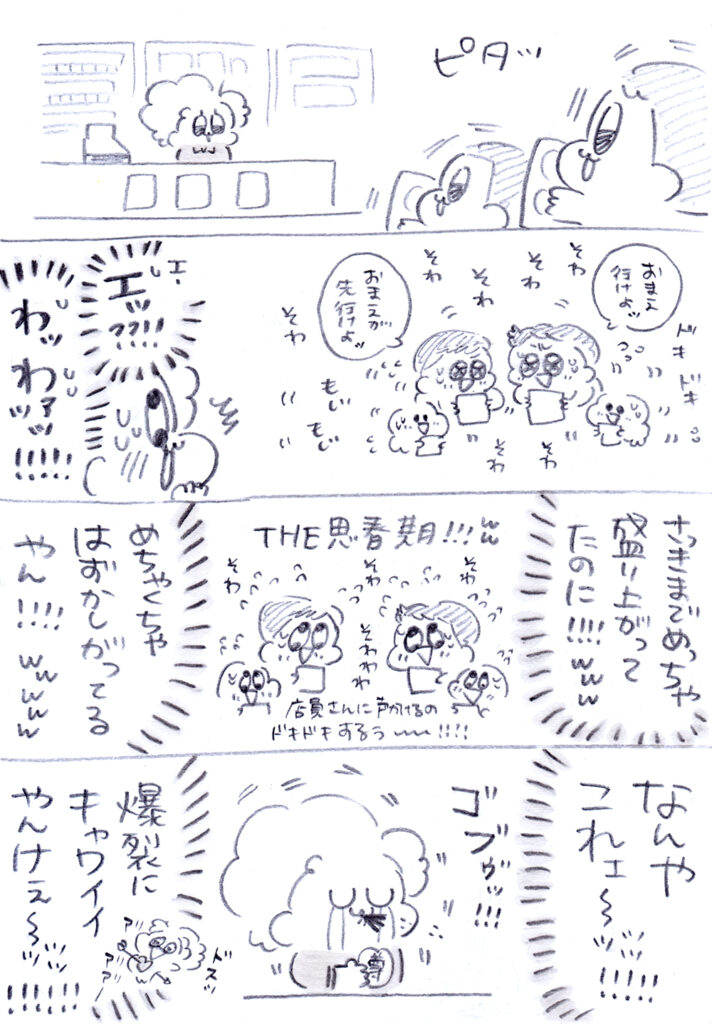 ピタッ
おまえ
行けよッ
おまえが
先行けよッ
ドキ
ドキ
そわ
そわ
そわ
そわ
そわ
そわ
そわ
もじ
もじ
エ、
エッ
??!!
わッ
わァッ
ッ!!!!!
さっきまでめっちゃ
盛り上がって
たのに!!!!www
THE思春期!!!ww
そわ
そわ
そわ
そわわわ
店員さんに声かけるの
ドキドキするぅ〜〜!!!!
めちゃくちゃ
はずかしがってる
やん!!!!wwwww
なんや
これェ〜ッッ!!!!
ゴブヴッ!!!
爆裂に
キャワイイ
やんけェ〜ッッ!!!!!!
ドスッ